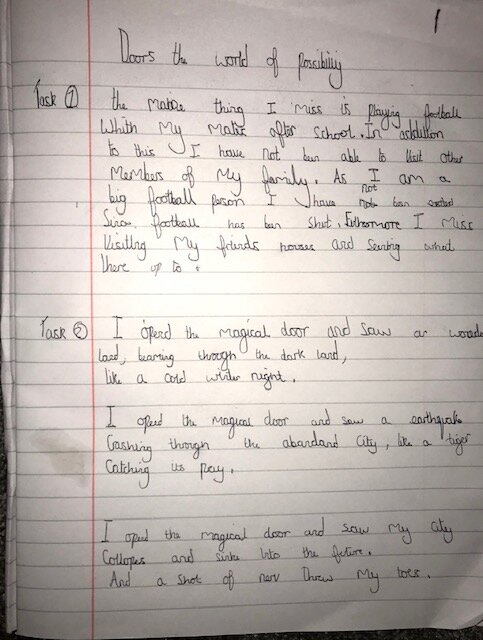 1
Doors the world of poscibiliy
Task 1 the maine thing I miss is playing football
Whith My Mates after school. In addition
to this I have not ben able to Visit other
Members of My family. As I am a
big football person I have not ben
Since football has ben shut. Futhermore I miss
Visiting My friends houses and Seeing what
there up to.
Task 2 I opend the magical door and saw an
land, tearing through the dark land,
like a cold winter night.
I opend the magical door and saw a earthquake
Crashing through the abandand City, like a tiger
Catching its pray.
I opend the magical door and saw My City
Collopes and sinke into the future.
And a shot of nerv threw My toes.